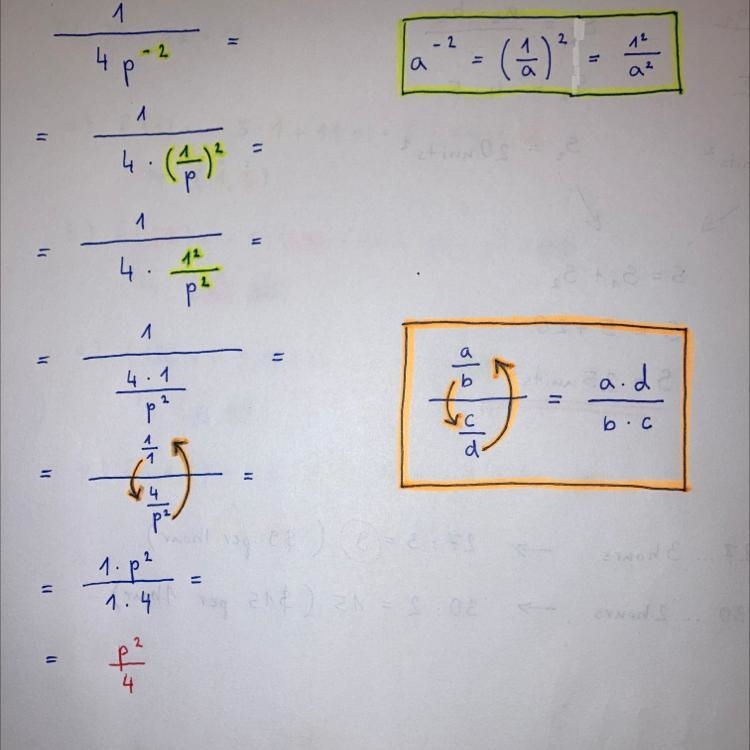 1 / 4p⁻² =
a⁻² = (1/a)² = 1²/a²
= 1 / 4 · (1/p)² =
= 1 / 4 · 1²/p² =
= 1 / (4 · 1 / p²) =
(a/b) / (c/d) = a · d / b · c
= (1/1) / (4/p²) =
= 1 · p² / 1 · 4 =
= p²/4